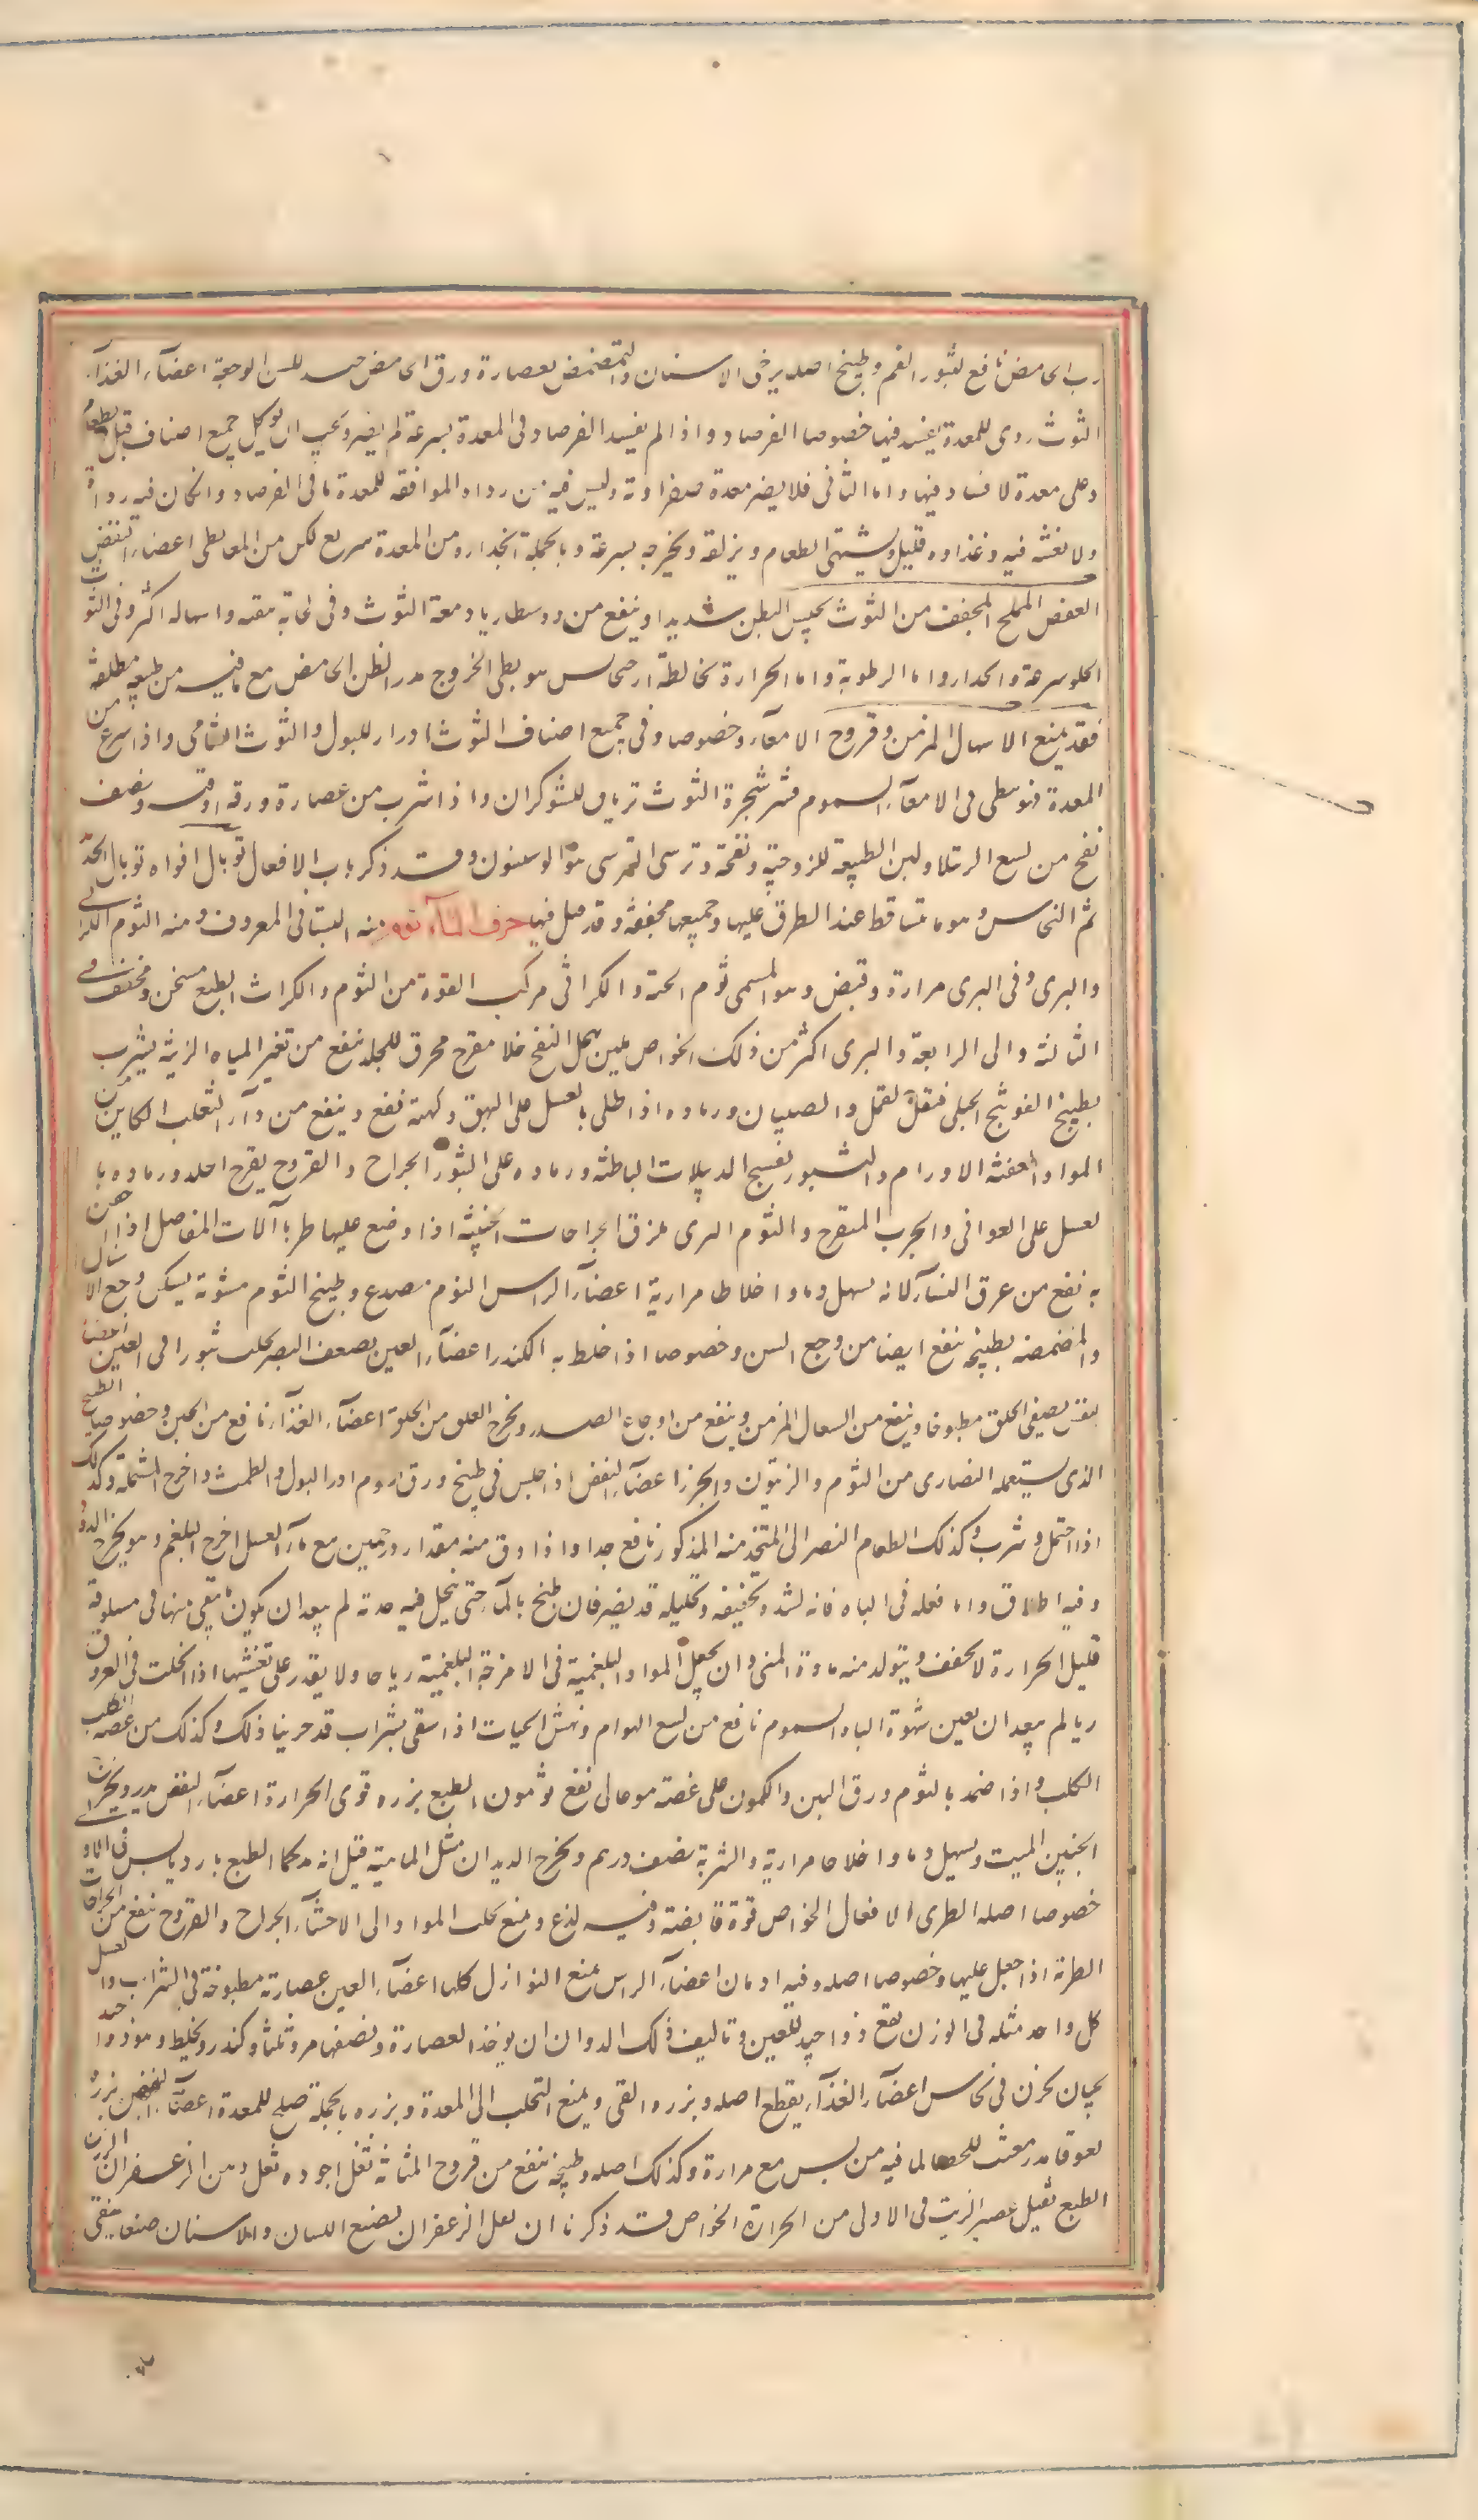 رب الحامض نافع لبثور الفم وطبيخ اصله يرخى الاسنان والتمضمض بعصارة ورق الحامض جيد للسن الوجعة اعضآء الغذآء
التوث ردى للمعدة يفسد فيها خصوصا الفرصاد واذا لم يفسد الفرصاد فى المعدة بسرعة لم يضر ويجب ان يوكل جميع اصناف قبل الطعام
وعلى معدة لا فساد فيها واما الشامى فلا يضر معدة صفراوية وليس فيه من رداه الموافقه للمعدة ما فى الفرصاد وان كان فيه رداة
ولا نغثه فيه وغذاوه قليل ويشتهى الطعام ويزلقه ويخرجه بسرعة وبالجملة انحداره من المعدة سريع لكن من المعا بطى اعضاء النفض
العفص المملح المجفف من التوث يحبس البطن شديدا وينفع من دوسنطاريا ودمعة التوث وفى لحايه تنقيه واسهاله اكثر وفى التوث
الحلو سرعة وانحدار واما الرطوبة واما الحرارة تخالطه هو بطى الخروج مدر الظن الحامض مع ما فيه من طبعه مطلقه
فقد يمنع الاسهال المزمن وقروح الامعآء وخصوصا وفى جميع اصناف التوث ادرار للبول والتوث الشامى واذا سرع من
المعدة فنو بطى فى الامعآء السموم قشر شجرة التوث ترياق للشوكران واذا شرب من عصارة ورقه اوقيه ونصف
نفع من لسع الرتيلا ولين الطبيعة للزوجته ونفعه وترسى الترسى هو الوسنون وقد ذكر باب الافعال توبال افواه توبال الحديد
ثم النحاس وهو ما يتساقط عند الطرق عليها وجميعها مجففه وقد قيل فيها حرف الثآء ثوم منه البستانى المعروف ومنه الثوم الكراثى
والبرى وفى البرى مرارة وقبض وهو المسمى ثوم الحية والكراثى مركب القوة من الثوم والكراث الطبع مسخن ومجفف فى
الثالثه والى الرابعة والبرى اكثر من ذلك الخواص ملين يحل النفخ جلا مقرح محرق للجلد ينفع من تغير المياه الزينة يشرب
بطبيخ الفوتنج الجبلى فيقتل القمل والصيبان ورماده اذا طلى بالعسل على البهق وكهنه نفع وينفع من دآء الثعلب الكاين من
المواد العفنه الاورام والبثور يفسح الدبيلات الباطنه ورماده على البثور الجراح والقروح يقرح الجلد ورماده با
لعسل على القوافى والجرب المتقرح والثوم البرى يلزق الجراحات الخبيثه اذا وضع عليها طريا آلات المفاصل اذا حقن
به نفع من عرق النسآء لانه يسهل وما واخلاطا مرارية اعضآء الراس الثوم مصدع وطبيخ الثوم مشويه يسكن وجع الاسنان
والمضمضه بطبيخه ينفع ايضا من وجع السن وخصوصا اذا خلط به الكندر اعضآء العين يضعف البصر يجلب بثورا فى العين اعضا
النفس يصفى الحلق مطبوخا وينفع من السعال المزمن وينفع من اوجاع الصدر ويخرج العلق من الحلق اعضآء الغذآء نافع من الحبن وخصوصا الطبيخ
الذى يستعمله النصارى من الثوم والزيتون والجزر اعضآء النفض اذا جلس فى طبيخ ورق اروم ادر البول والطمث واخرج المشيمة وكذلك
اذا احتمل وشرب وكذلك الطعام النصرانى المتخذ منه المذكور نافع جدا واذا دق منه مقدار درهمين مع مآء العسل اخرج البلغم وهو يخرج الدود
وفيه اطلاق واما فعله فى الباه فانه لشدة تجفيفه وتحليله قد يضر فان طبخ بالمآء حتى ينحل فيه حدته لم يبعد ان يكون ما يبقى منها فى مسلوقه
قليل الحرارة لا يجفف ويتولد منه مادة المنى وان يجعل المواد البلغمية فى الامزجة البلغمية رياحا ولا يقدر على تغشيها اذا انحلت فى العروق
ريا لم يبعد ان يعين شهوة الباه السموم نافع من لسع الهوام ونهش الحيات اذا سقى بشراب قد جربنا ذلك وكذلك من عضه الكلب
الكلب واذا ضمد بالثوم ورق التين والكمون على عضه موغالى نفع ثومون الطبع بزره قوى الحرارة اعضآء النفض يدر ويخرج
الجنين الميت ويسهل وما واخلاطا مرارية والشربة نصف درهم ويخرج الديدان مثل المامية قيل انه مدكما الطبع بارد يابس فى الاولى
خصوصا اصله الطرى الافعال الخواص قوة قابضة وفيه لذع ويمنع تحلب المواد الى الاحشآء الجراح والقروح ينفع من الجراحات
الطرية اذا جعل عليها وخصوصا اصله وفيه ادمان اعضآء الراس يمنع النوازل كلها اعضآء العين عصارة مطبوخة فى الشراب والعسل
كل واحد مثله فى الوزن نفع ذوا جيد للعين وتاليف ذلك الدوا ان ان يوخذ العصارة ونصفها مر وثلثها وكندر ويخلط وهو دوا جيد
يجب ان يخزن فى نحاس اعضآء الغذآء يقطع اصله وبزره القى ويمنع التحلب الى المعدة وبزره بالجملة صالح للمعدة اعضآء النفض بزره
لعوقا مدر مفتت للحصا لما فيه من يبس مع مرارة وكذلك اصله وطبيخه ينفع من قروح المثانة ثفل اجوده ثفل دهن الزعفران الزيت
الطبع ثفيل عصير الزيت فى الاولى من الحرارة الخواص قد ذكرنا ان ثفل الزعفران يصبغ اللسان والاسنان صبغا يبقى